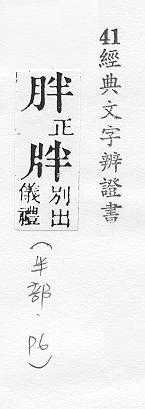 41經典文字辨證書
胖正牉別出
儀禮
(半部.P6)